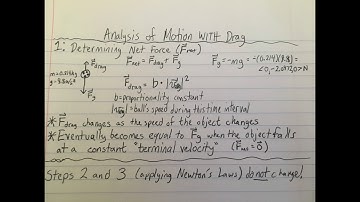 Analysis of Motion WITH Drag
1: Determining Net Force (F⃗net)
F⃗net = F⃗drag + F⃗g
F⃗g = -mg = -(0.214)(9.8) =
<0, -2.0972, 0> N
F⃗drag
m = 0.214kg
g = 9.8m/s²
F⃗g
F⃗drag = b · |v⃗avg|²
b = proportionality constant
|v⃗avg| = ball's speed during this time interval
* F⃗drag changes as the speed of the object changes
* Eventually becomes equal to F⃗g when the object falls
at a constant "terminal velocity" (F⃗net = 0⃗)
Steps 2 and 3 (applying Newton's Laws) do not change!